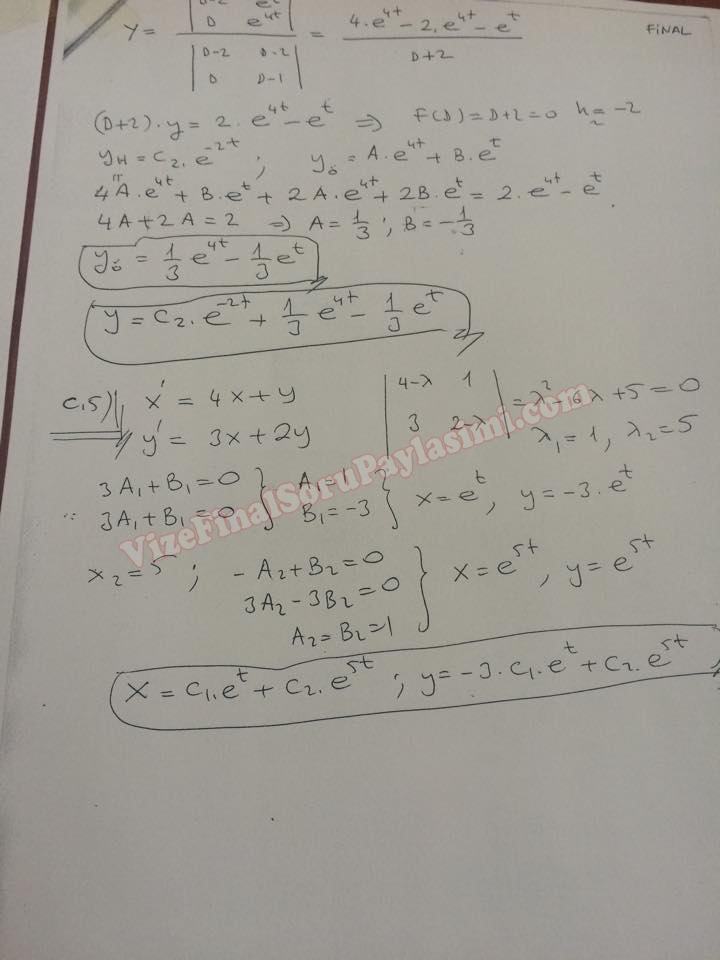 FİNAL
Y = | D-2 e^t ; D e^4t | / | D-2 D-2 ; D D-1 | = (4.e^4t - 2.e^4t - e^t) / (D+2)
(D+2).y = 2.e^4t - e^t ⇒ F(D) = D+2 = 0 h = -2
y_H = c₂.e^-2t ; y_ö = A.e^4t + B.e^t
4A.e^4t + B.e^t + 2A.e^4t + 2B.e^t = 2.e^4t - e^t
4A + 2A = 2 ⇒ A = 1/3 ; B = -1/3
y_ö = 1/3 e^4t - 1/3 e^t
y = c₂.e^-2t + 1/3 e^4t - 1/3 e^t
C.5) x' = 4x + y
y' = 3x + 2y
| 4-λ 1 ; 3 2-λ | = λ² - 6λ + 5 = 0
λ₁ = 1, λ₂ = 5
3A₁ + B₁ = 0
3A₁ + B₁ = 0 } A₁ = 1
B₁ = -3 } x = e^t, y = -3.e^t
x₂ = 5 ; -A₂ + B₂ = 0
3A₂ - 3B₂ = 0
A₂ = B₂ = 1 } x = e^5t, y = e^5t
X = c₁.e^t + c₂.e^5t ; y = -3.c₁.e^t + c₂.e^5t
VizeFinalSoruPaylasimi.com